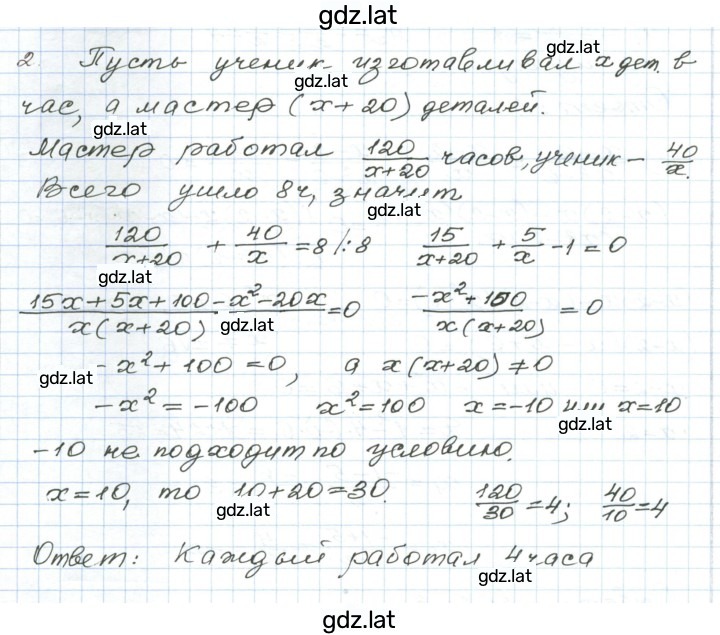 gdz.lat
2. Пусть ученик изготавливал x дет. в
gdz.lat
gdz.lat
час, а мастер (x+20) деталей.
gdz.lat
Мастер работал 120/(x+20) часов, ученик – 40/x.
Всего ушло 8ч, значит
gdz.lat
120/(x+20) + 40/x = 8 /:8   15/(x+20) + 5/x - 1 = 0
gdz.lat
(15x+5x+100-x²-20x)/(x(x+20)) = 0   (-x²+100)/(x(x+20)) = 0
gdz.lat
-x²+100=0, а x(x+20)≠0
gdz.lat
-x²=-100   x²=100   x=-10 или x=10
gdz.lat
-10 не подходит по условию.
x=10, то 10+20=30.   120/30=4; 40/10=4
gdz.lat
Ответ: Каждый работал 4 часа
gdz.lat
gdz.lat